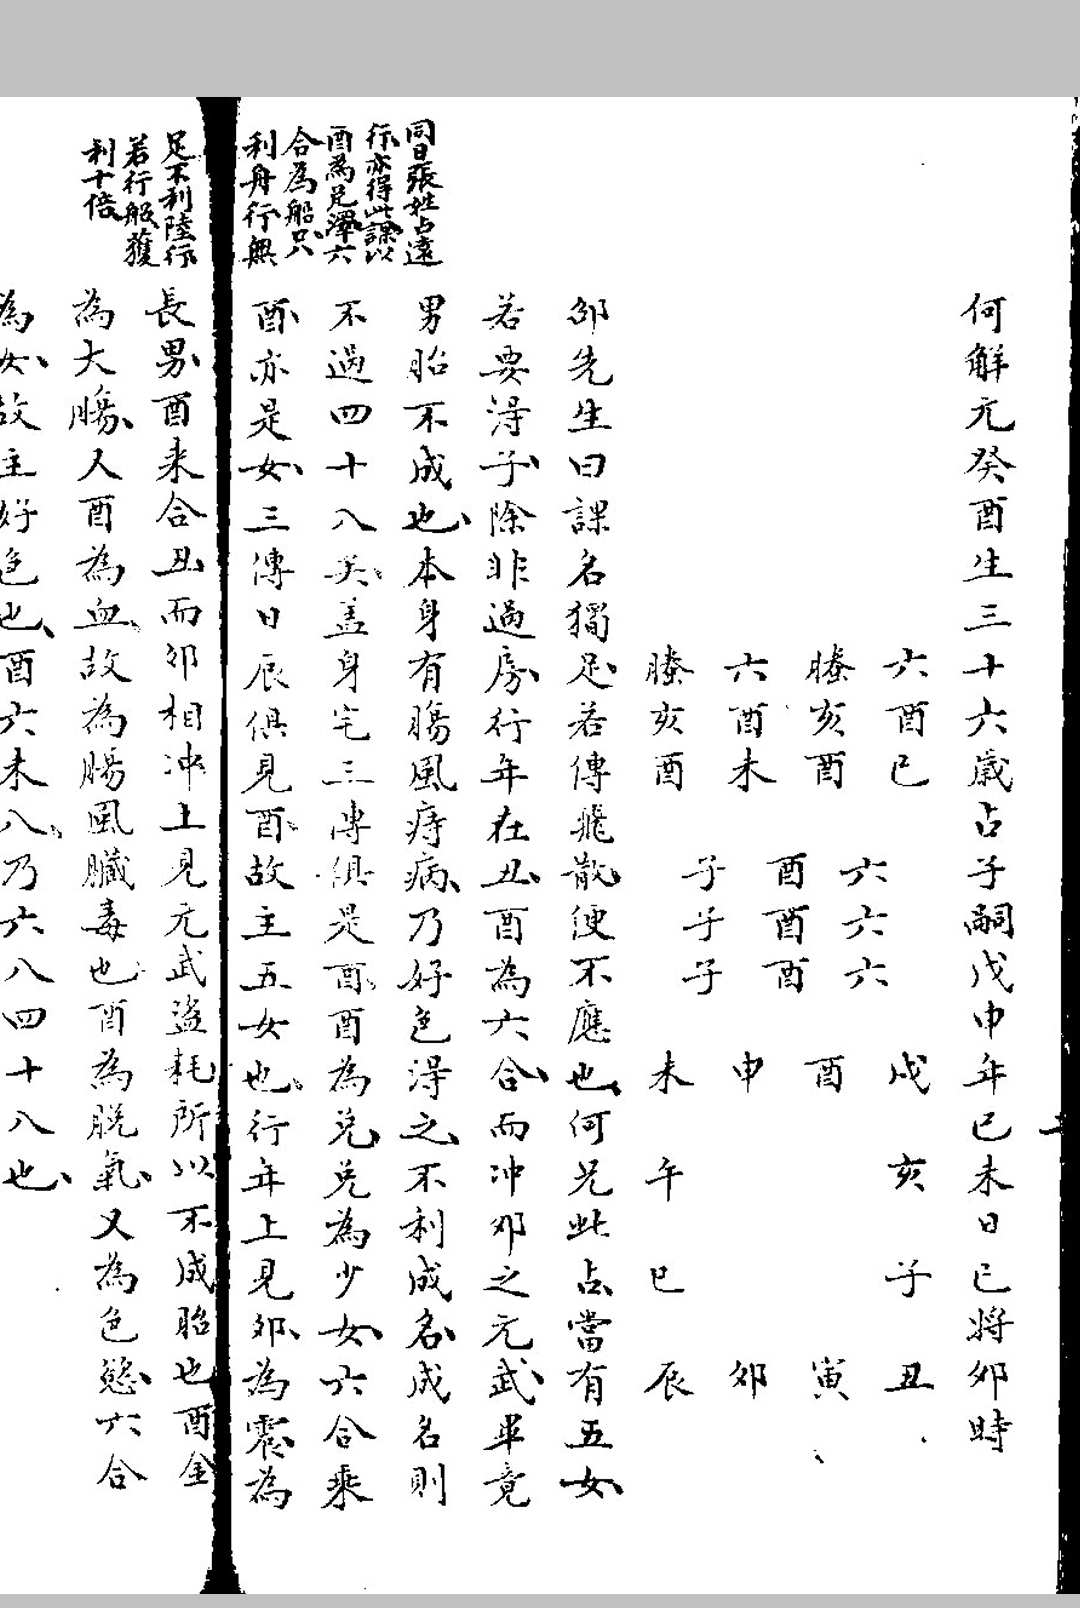 何解元癸酉生三十六歲占子嗣戊申年己未日巳將卯時
六酉巳
螣亥酉
六酉未
螣亥酉
六六六
酉酉酉
子子子
戌亥子丑
酉寅
申卯
未午巳辰
邵先生曰課名獨足若傳飛散便不應也何兄此占當有五女
若要得子除非過房行年在丑酉為六合而冲卯之元武畢竟
男胎不成也本身有腸風痔病乃好色得之不利成名成名則
不過四十八矣盖身宅三傳俱是酉酉為兌兌為少女六合乘
酉亦是女三傳日辰俱見酉故主五女也行年上見卯為震為
長男酉來合丑而卯相冲上見元武盜耗所以不成胎也酉金
為大腸又酉為血故為腸風臟毒也酉為脫氣又為色慾六合
為女故主好色也酉六未八乃六八四十八也
同日張姓占遠
行亦得此課以
酉為兑澤六
合為船只
利舟行無
足不利陸行
若行船獲
利十倍